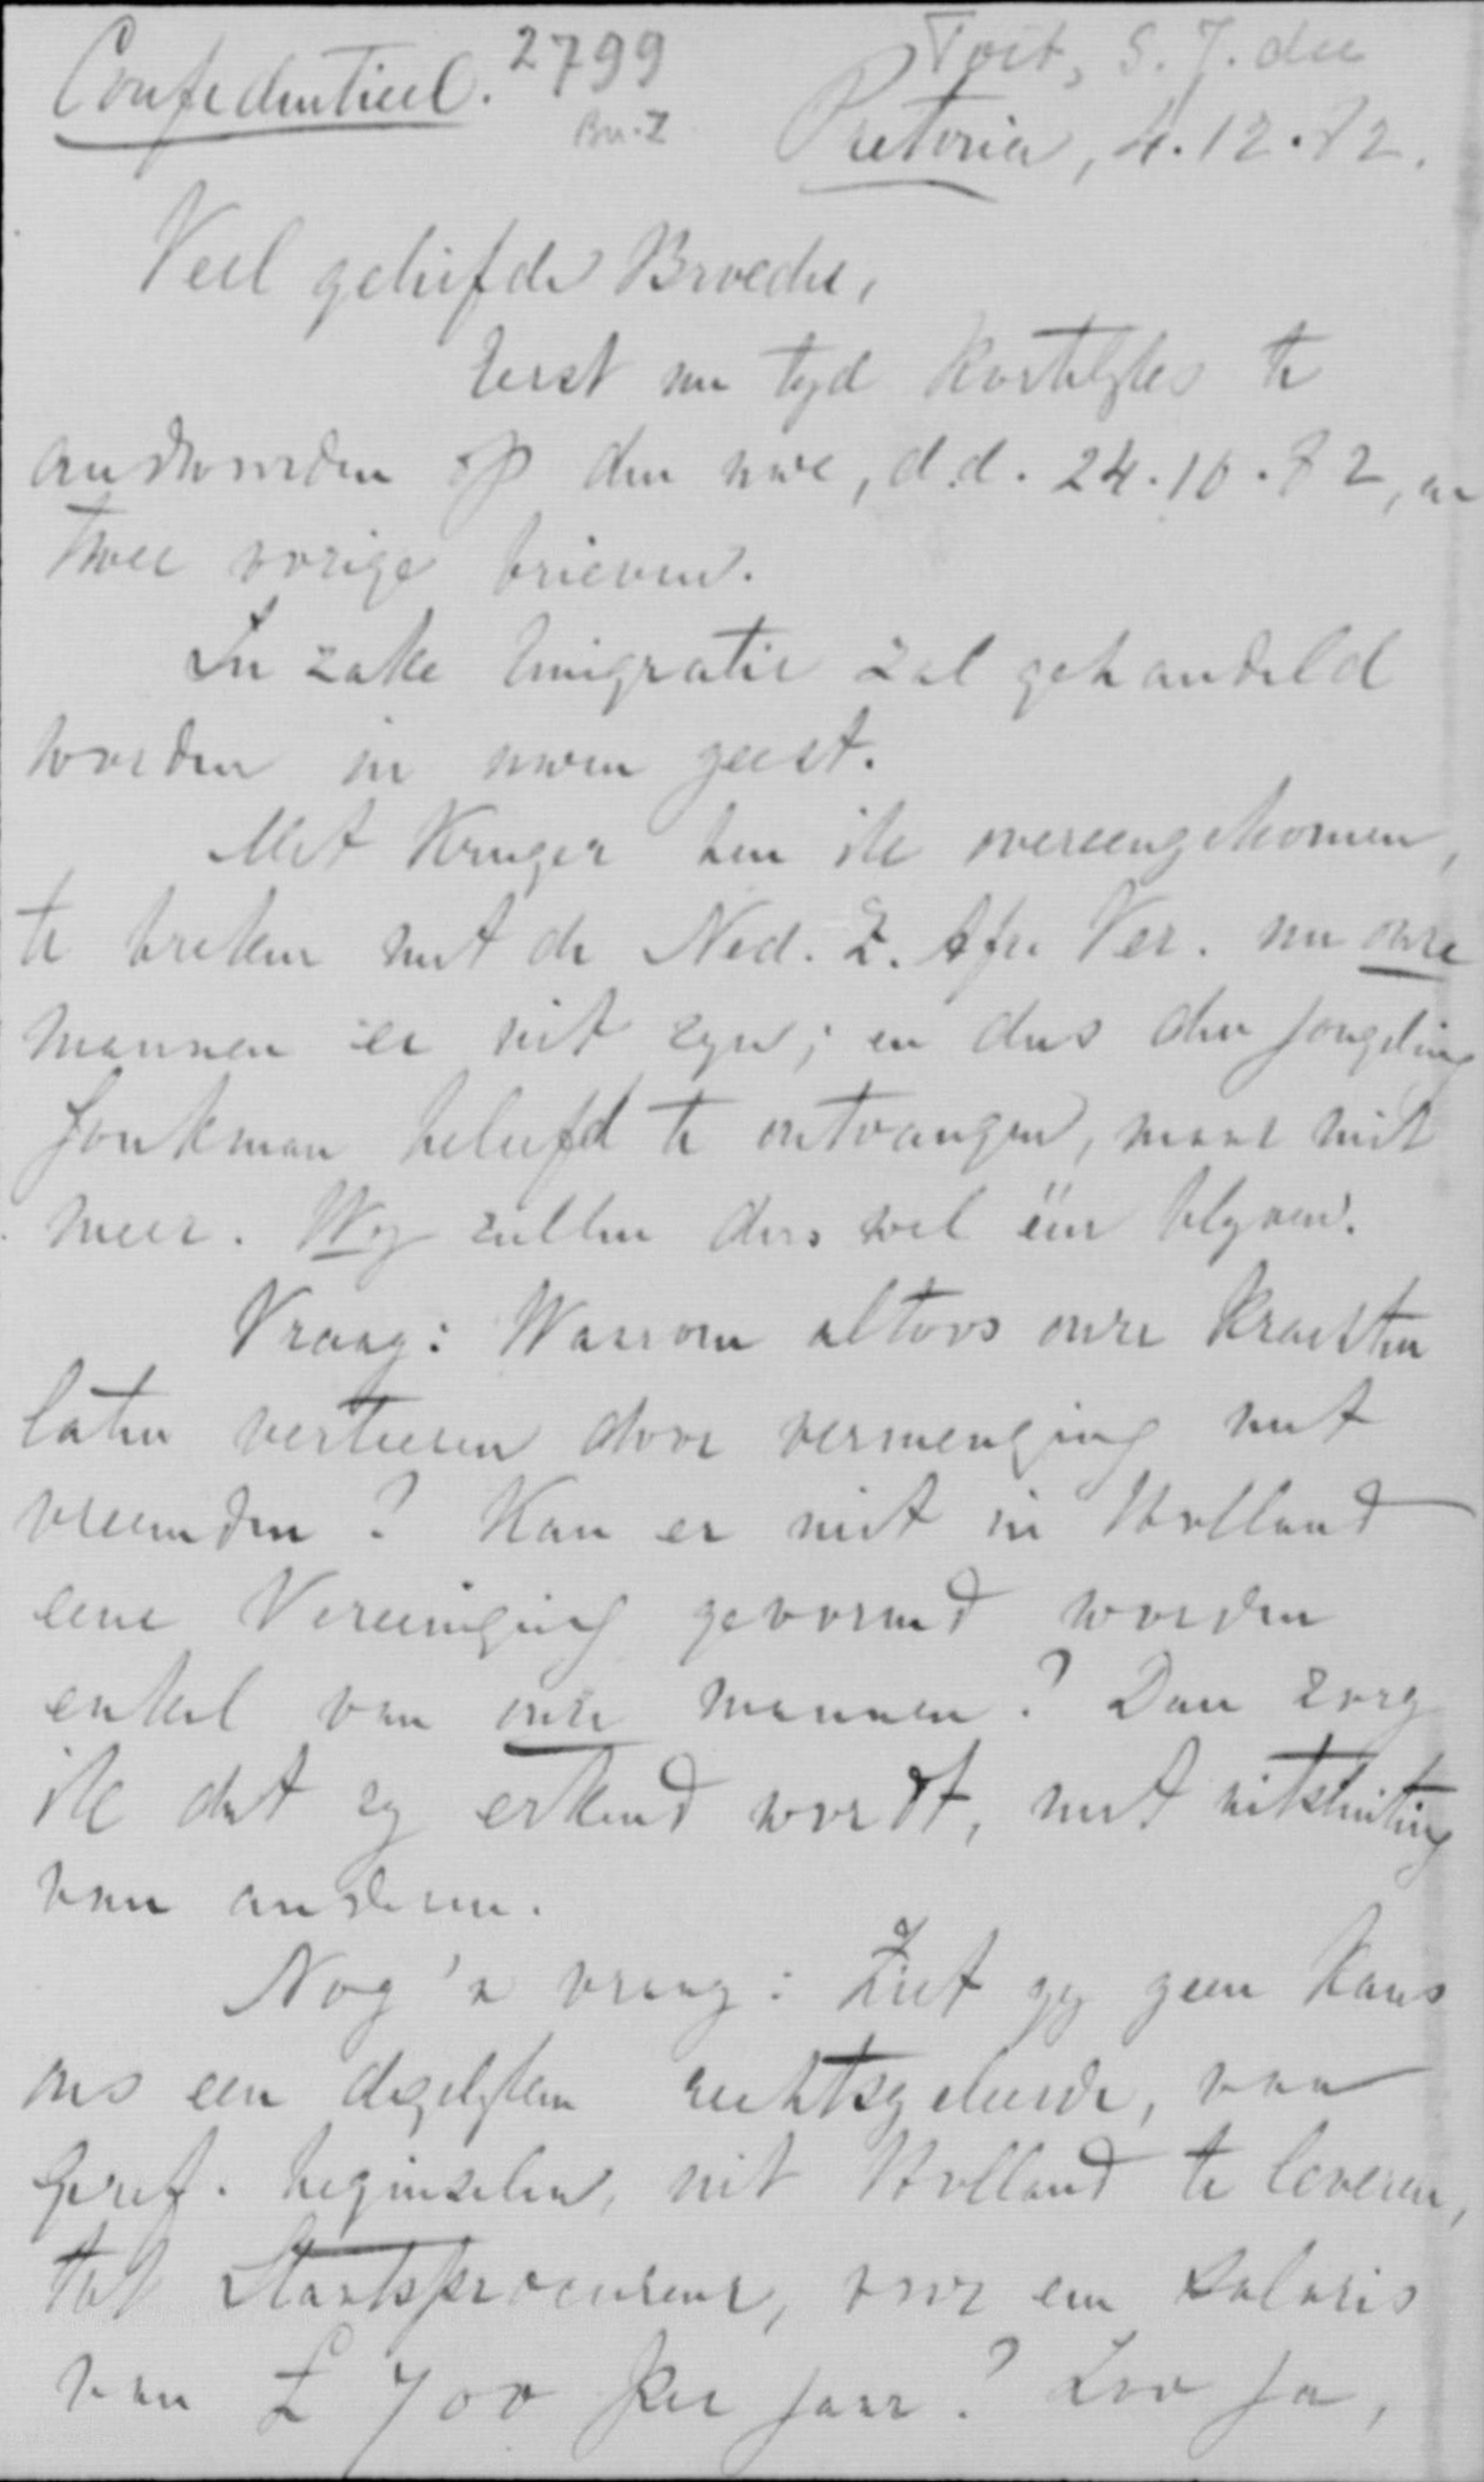 Confidentieel. 2799 Toit, S. J. du
Bu. Z
Pretoria, 4.12.82.
Veel geliefde Broeder,
Eerst nu tyd kortelyks te
andwoorden op den uwe, d.d. 24.10.82, en
twee vorige brieven.
In zake Emigratie zal gehandeld
worden in uwen geest.
Met Kruger ben ik overeengekomen,
te breken met de Ned. Z. Afr. Ver. nu onze
mannen er uit zyn; en dus den jongeling
Jonkman beleefd te ontvangen, maar niet
meer. Wy zullen dus wel één blyven.
Vraag: Waarom altoos onze krachten
laten verteeren door vermenging met
vreemden? Kan er niet in Holland
eene Vereeniging gevormd worden
enkel van onze mannen? Dan zorg
ik dat zy erkend wordt, met uitsluiting
van anderen.
Nog 'n vraag: Ziet gy geen kans
ons een degelyken rechtsgeleerde, van
Geref. beginselen, uit Holland te leveren,
tot Staatsprocureur, voor een salaris
van £ 700 per jaar? Zoo ja,